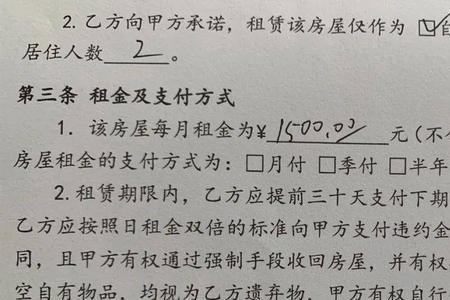 2. 乙方向甲方承诺，租赁该房屋仅作为 ☑自
居住人数 2 。
第三条 租金及支付方式
1. 该房屋每月租金为¥ 1500.00 元（不
房屋租金的支付方式为：□月付 □季付 □半年
2. 租赁期限内，乙方应提前三十天支付下期
乙方应按照日租金双倍的标准向甲方支付违约金
同，且甲方有权通过强制手段收回房屋，并有权
空自有物品，均视为乙方遗弃物，甲方有权自行